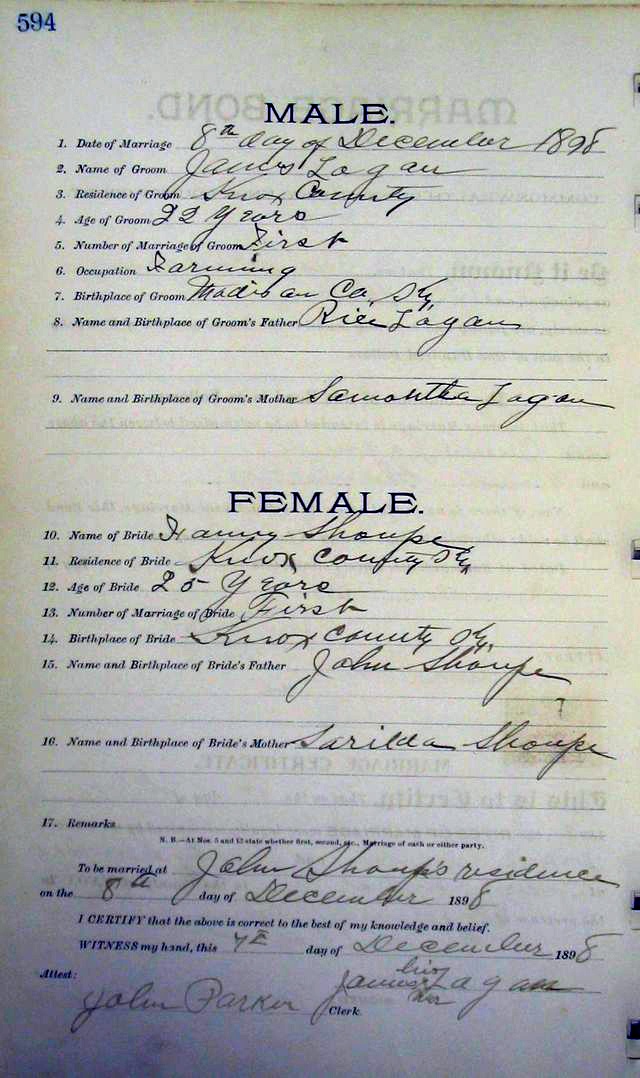 594
MALE.
1. Date of Marriage 8th day of December 1898
2. Name of Groom James Logan
3. Residence of Groom Knox County
4. Age of Groom 22 Years
5. Number of Marriage of Groom First
6. Occupation Farming
7. Birthplace of Groom Madison Co, Ky,
8. Name and Birthplace of Groom's Father Rice Logan
9. Name and Birthplace of Groom's Mother Samantha Logan
FEMALE.
10. Name of Bride Fanny Shoupe
11. Residence of Bride Knox County Ky
12. Age of Bride 25 Years
13. Number of Marriage of Bride First
14. Birthplace of Bride Knox County Ky,
15. Name and Birthplace of Bride's Father John Shoupe
16. Name and Birthplace of Bride's Mother Sarilda Shoupe
17. Remarks
N. B.—At Nos. 5 and 13 state whether first, second, etc., Marriage of each or either party.
To be married at John Shoup's residence
on the 8th day of December 1898
I CERTIFY that the above is correct to the best of my knowledge and belief.
WITNESS my hand, this 7th day of December 1898
Attest: James his Logan
John Parker Clerk.